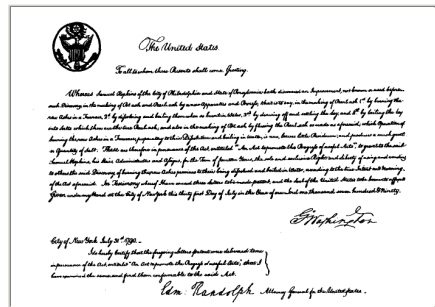 The United States.
To all to whom these Presents shall come, Greeting.
Whereas Samuel Hopkins of the City of Philadelphia and State of Pensylvania hath discovered an Improvement, not known or used before,
such Discovery, in the making of Pot ash and Pearl ash by a new Apparatus and Process; that is to say, in the making of Pearl ash 1st by burning the
raw Ashes in a Furnace, 2d by dissolving and boiling them when so burnt in Water, 3d by drawing off and settling the Ley, and 4th by boiling the Ley
into Salts which then are the true Pearl ash; and also in the making of Pot ash by fluxing the Pearl ash so made as aforesaid; which Operation of
burning the raw Ashes in a Furnace, preparatory to their Dissolution and boiling in Water, is new, leaves little Residuum; and produces a much greater
Quantity of Salt: These are therefore in pursuance of the Act, entituled "An Act to promote the Progress of useful Arts", to grant to the said
Samuel Hopkins, his Heirs, Administrators and Assigns, for the Term of fourteen Years, the sole and exclusive Right and Liberty of using and vending
to others the said Discovery, of burning the raw Ashes previous to their being dissolved and boiled in Water, according to the true Intent and Meaning
of the Act aforesaid. In Testimony whereof I have caused these Letters to be made patent, and the Seal of the United States to be hereunto affixed
Given under my Hand at the City of New York this thirty first Day of July in the Year of our Lord one thousand seven hundred & Ninety.
G. Washington
City of New York July 31st 1790.
I do hereby Certify that the foregoing Letters patent were delivered to me
in pursuance of the Act, entituled "An Act to promote the Progress of useful Arts"; that I
have examined the same, and find them conformable to the said Act.
Edm. Randolph Attorney General for the United States.